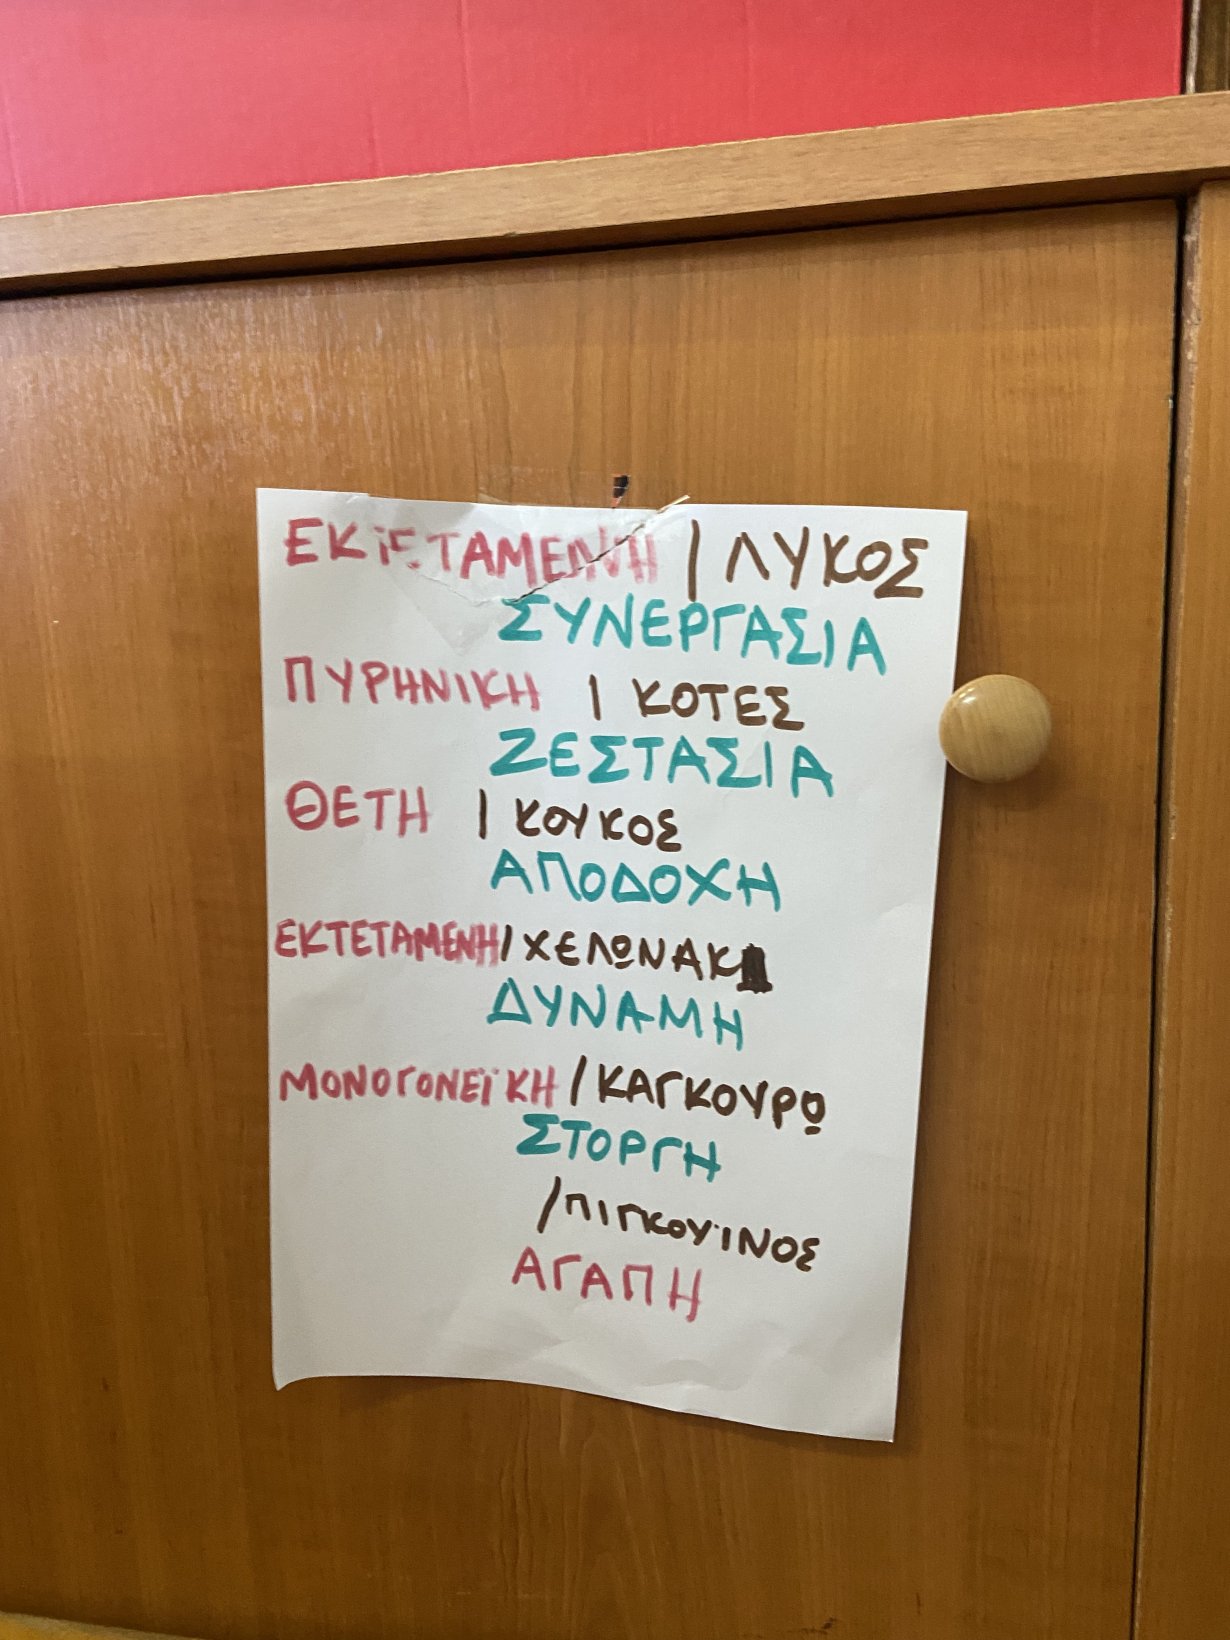 ΕΚΤΕΤΑΜΕΝΗ / ΛΥΚΟΣ
ΣΥΝΕΡΓΑΣΙΑ
ΠΥΡΗΝΙΚΗ / ΚΟΤΕΣ
ΖΕΣΤΑΣΙΑ
ΘΕΤΗ / ΚΟΥΚΟΣ
ΑΠΟΔΟΧΗ
ΕΚΤΕΤΑΜΕΝΗ / ΧΕΛΩΝΑΚ
ΔΥΝΑΜΗ
ΜΟΝΟΓΟΝΕΪΚΗ / ΚΑΓΚΟΥΡΩ
ΣΤΟΡΓΗ
/ ΠΙΓΚΟΥΪΝΟΣ
ΑΓΑΠΗ